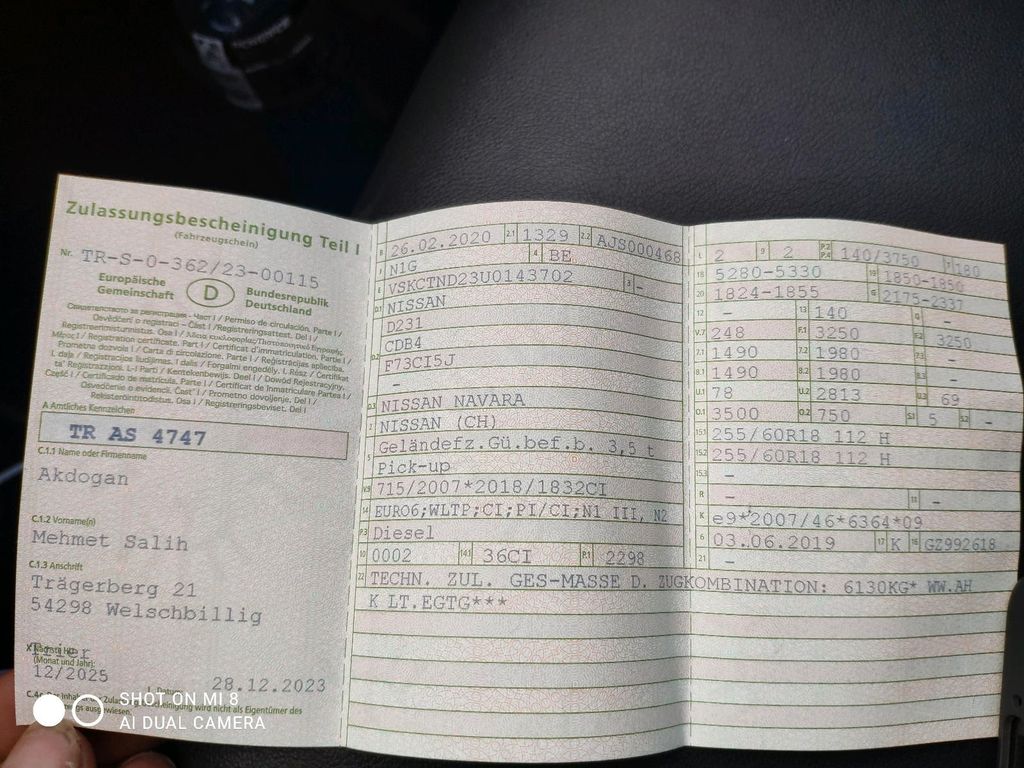 Zulassungsbescheinigung Teil I
(Fahrzeugschein)
Nr. TR-S-0-362/23-00115
Europäische Gemeinschaft
D
Bundesrepublik Deutschland
Свидетелство за регистрация - Част I / Permiso de circulación. Parte I /
Osvědčení o registraci - Část I / Registreringsattest. Del I /
Registreerimistunnistus. Osa I /
Registration certificate. Part I / Certificat d'immatriculation. Partie I /
Prometna dozvola I / Carta di circolazione. Parte I / Reģistrācijas apliecība.
I. daļa / Registracijos liudijimas. I dalis / Forgalmi engedély. I. Rész / Ċertifikat
ta' Reġistrazzjoni. L-I Parti / Kentekenbewijs. Deel I / Dowód Rejestracyjny.
Część I / Certificado de matrícula. Parte I / Certificat de înmatriculare Partea I /
Osvedčenie o evidencii. Časť I / Prometno dovoljenje. Del I /
Rekisteröintitodistus. Osa I / Registreringsbeviset. Del I
A Amtliches Kennzeichen
TR AS 4747
C.1.1 Name oder Firmenname
Akdogan
C.1.2 Vorname(n)
Mehmet Salih
C.1.3 Anschrift
Trägerberg 21
54298 Welschbillig
Trier
(Monat und Jahr):
12/2025
Datum
28.12.2023
B 26.02.2020 2.1 1329 2.2 AJS000468
J N1G 4 BE
E VSKCTND23U0143702 3 -
D.1 NISSAN
D231
D.2 CDB4
F73CI5J
-
D.3 NISSAN NAVARA
2 NISSAN (CH)
5 Geländefz.Gü.bef.b. 3,5 t
Pick-up
V.9 715/2007*2018/1832CI
14 EURO6;WLTP;CI;PI/CI;N1 III, N2
P.3 Diesel
10 0002 14.1 36CI P.1 2298
22 TECHN. ZUL. GES-MASSE D. ZUGKOMBINATION: 6130KG* WW.AH
K LT.EGTG***
L 2 9 2 P.2 P.4 140/3750 T 180
18 5280-5330 19 1850-1850
20 1824-1855 G 2175-2337
12 - 13 140 Q -
V.7 248 F.1 3250 F.2 3250
7.1 1490 7.2 1980 7.3 -
8.1 1490 8.2 1980 8.3 -
U.1 78 U.2 2813 U.3 69
O.1 3500 O.2 750 S.1 5 S.2 -
15.1 255/60R18 112 H
15.2 255/60R18 112 H
15.3 -
R - 11 -
K e9*2007/46*6364*09
6 03.06.2019 17 K 16 GZ992618
21 -
SHOT ON MI 8
AI DUAL CAMERA